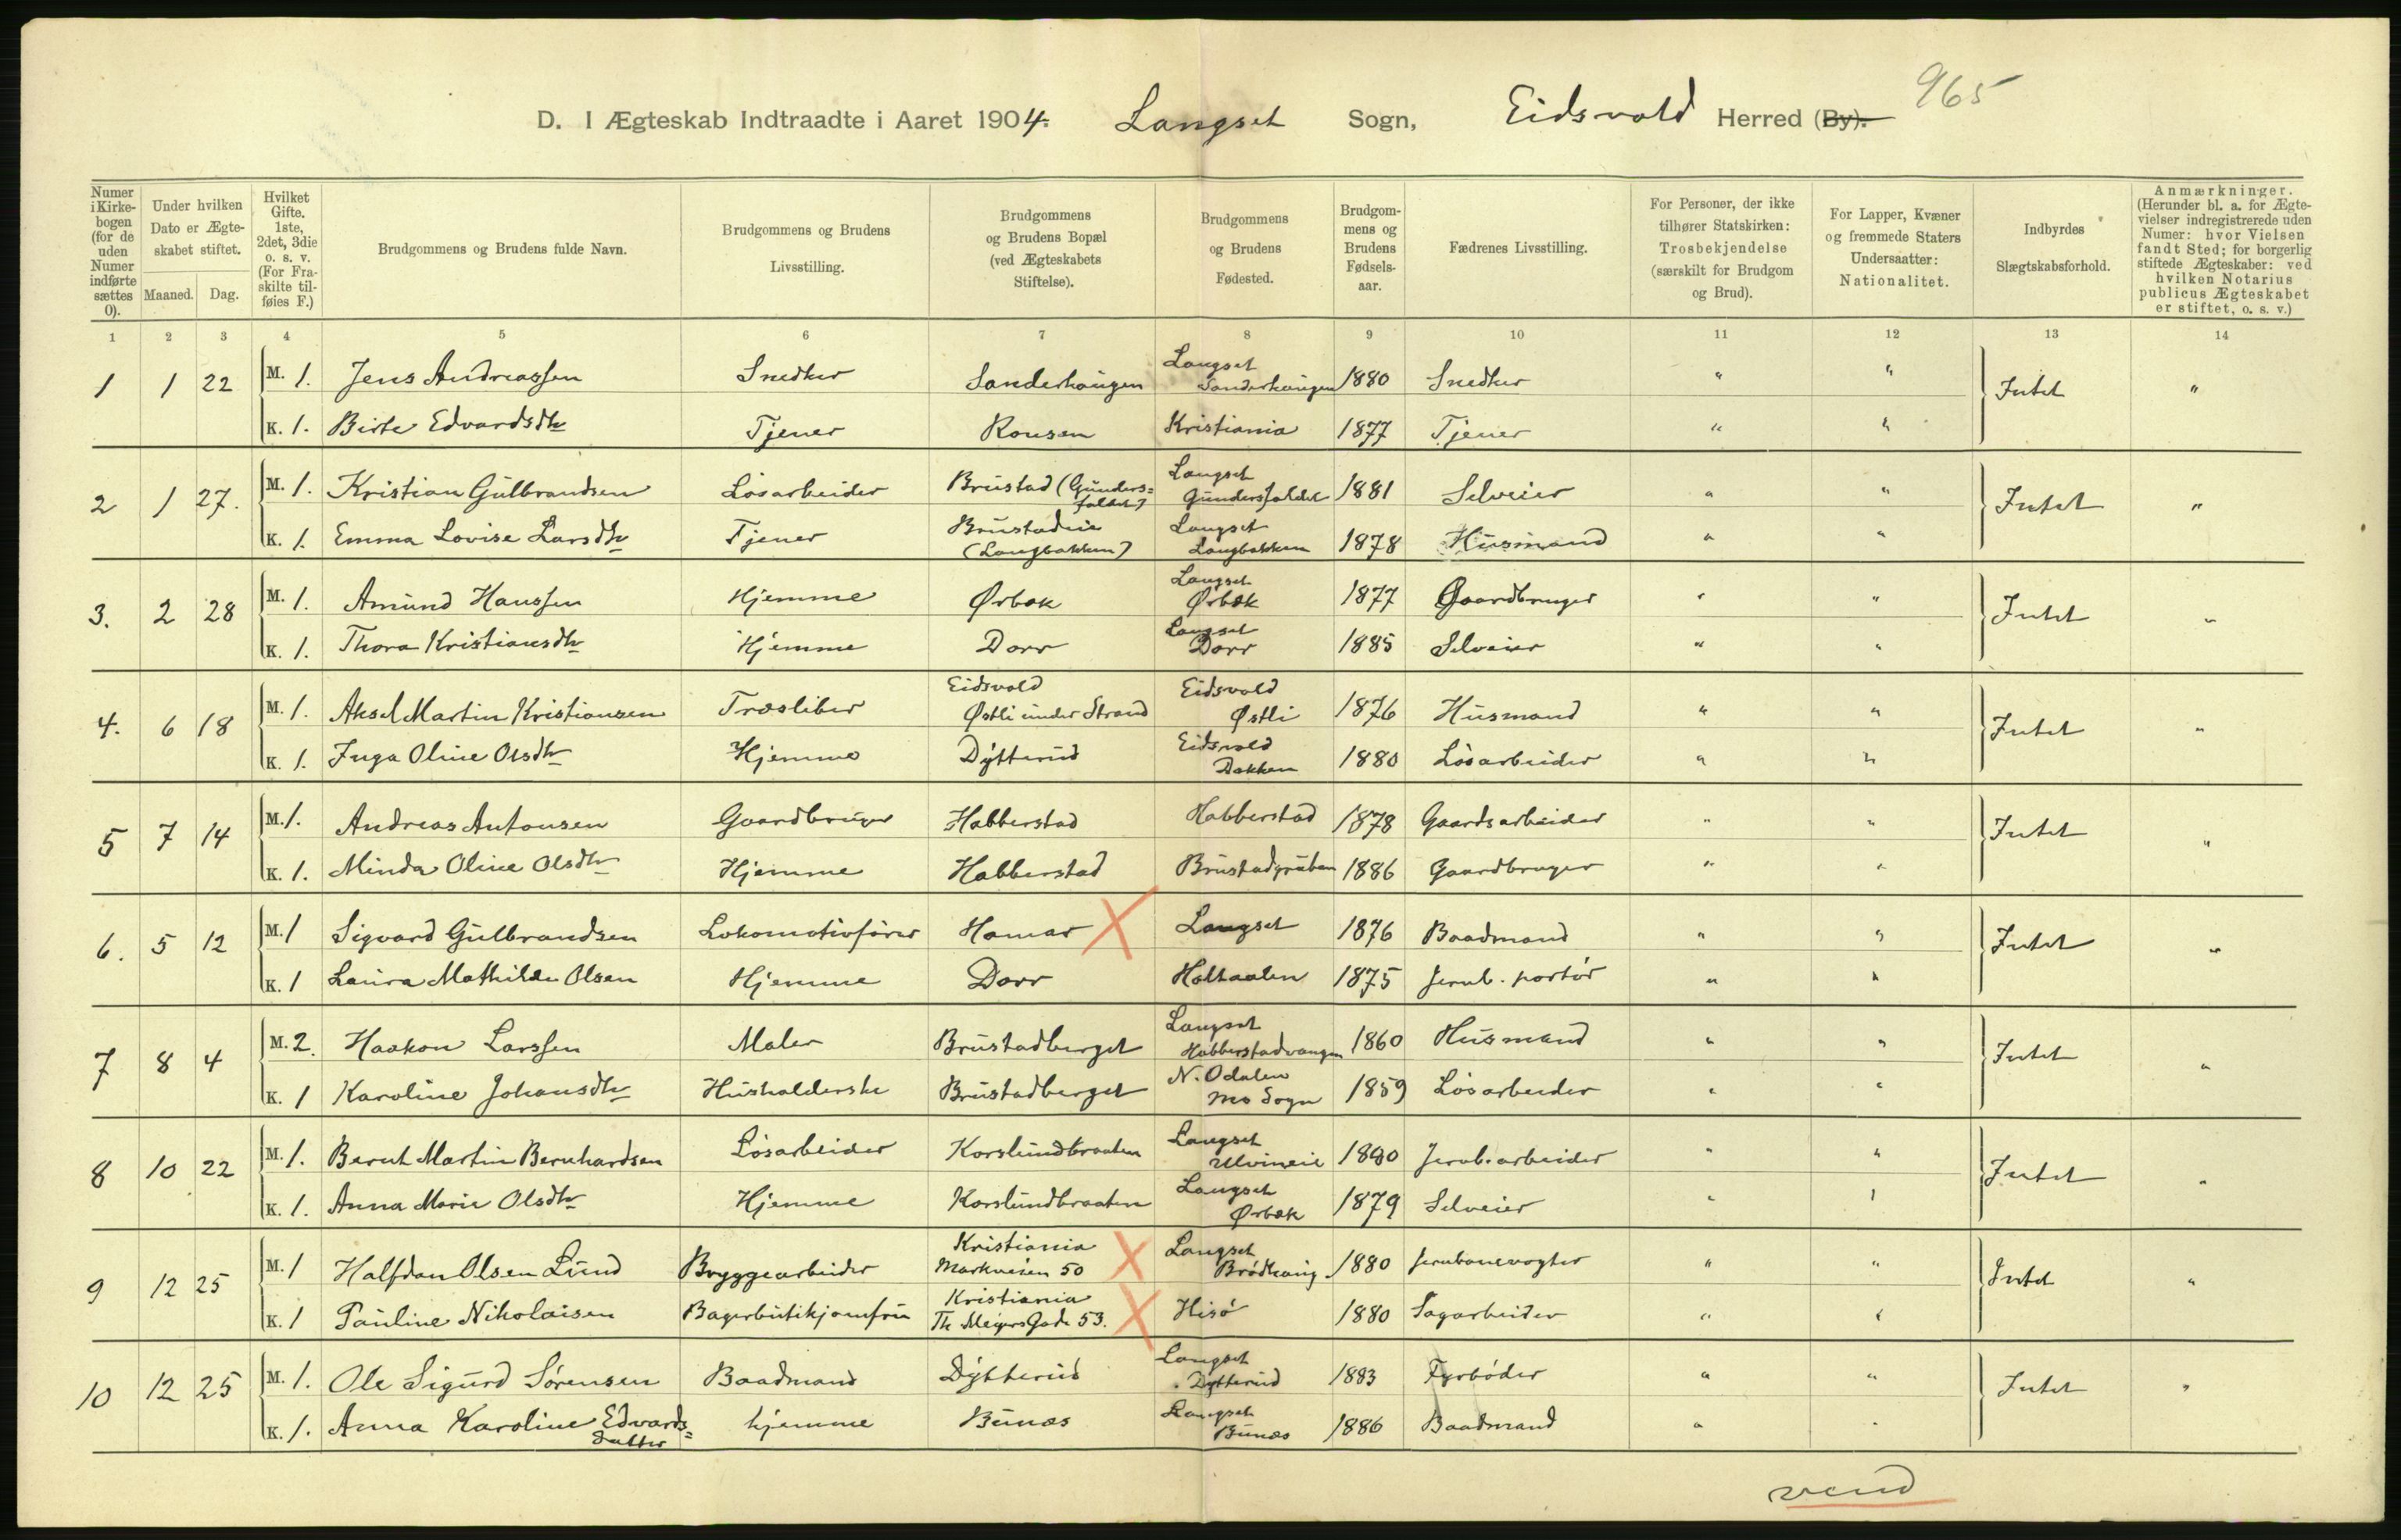 965
D. I Ægteskab Indtraadte i Aaret 1904. Langset Sogn, Eidsvold Herred (By).
Numer i Kirkebogen (for de uden Numer indførte sættes 0).
Under hvilken Dato er Ægteskabet stiftet.
Maaned. Dag.
Hvilket Gifte. 1ste, 2det, 3die o. s. v. (For Fraskilte tilføies F.)
Brudgommens og Brudens fulde Navn.
Brudgommens og Brudens Livsstilling.
Brudgommens og Brudens Bopæl (ved Ægteskabets Stiftelse).
Brudgommens og Brudens Fødested.
Brudgommens og Brudens Fødselsaar.
Fædrenes Livsstilling.
For Personer, der ikke tilhører Statskirken: Trosbekjendelse (særskilt for Brudgom og Brud).
For Lapper, Kvæner og fremmede Staters Undersaatter: Nationalitet.
Indbyrdes Slægtskabsforhold.
Anmærkninger. (Herunder bl. a. for Ægtevielser indregistrerede uden Numer: hvor Vielsen fandt Sted; for borgerlig stiftede Ægteskaber: ved hvilken Notarius publicus Ægteskabet er stiftet, o. s. v.)
1 2 3 4 5 6 7 8 9 10 11 12 13 14
1 1 22 M. 1. Jens Andreassen Snedker Sanderhaugen Langset Sanderhaugen 1880 Snedker " " Intet "
K. 1. Birte Edvardsdtr Tjener Rousen Kristiania 1877 Tjener " "
2 1 27. M. 1. Kristian Gulbrandsen Løsarbeider Brustad (Gundersfaldet) Langset Gundersfaldet 1881 Selveier " " Intet "
K. 1. Emma Lovise Larsdtr Tjener Brustadeie (Langbakken) Langset Langbakken 1878 Husmand " "
3. 2 28 M. 1. Amund Hanssen Hjemme Ørbæk Langset Ørbæk 1877 Gaardbruger " " Intet "
K. 1. Thora Kristiansdtr Hjemme Dorr Langset Dorr 1885 Selveier " "
4. 6 18 M. 1. Aksel Martin Kristiansen Træsliber Eidsvold Østli under Strand Eidsvold Østli 1876 Husmand " " Intet "
K. 1. Inga Oline Olsdtr Hjemme Dytterud Eidsvold Bakken 1880 Løsarbeider " "
5 7 14 M. 1. Andreas Antonsen Gaardbruger Habberstad Habberstad 1878 Gaardsarbeider " " Intet "
K. 1. Minda Oline Olsdtr Hjemme Habberstad Brustadgruben 1886 Gaardbruger " "
6. 5 12 M. 1 Sigvard Gulbrandsen Lokomotivfører Hamar Langset 1876 Baadmand " " Intet "
K. 1 Laura Mathilde Olsen Hjemme Dorr Holtaalen 1875 Jernb. portør " "
7 8 4 M. 2. Haakon Larssen Maler Brustadberget Langset Habberstadvangen 1860 Husmand " " Intet "
K. 1 Karoline Johansdtr Husholderske Brustadberget N. Odalen Mo Sogn 1859 Løsarbeider " "
8 10 22 M. 1. Bernt Martin Bernhardsen Løsarbeider Korslundbraaten Langset Ulvineie 1880 Jernb. arbeider " " Intet "
K. 1. Anna Marie Olsdtr Hjemme Korslundbraaten Langset Ørbæk 1879 Selveier " "
9 12 25 M. 1 Halfdan Olsen Lund Bryggearbeider Kristiania Markveien 50 Langset Brødhaug 1880 Jernbanevogter " " Intet "
K. 1 Pauline Nikolaisen Bagerbutikjomfru Kristiania Th Meyers Gade 53. Hisø 1880 Sagarbeider " "
10 12 25 M. 1. Ole Sigurd Sørensen Baadmand Dytterud Langset Dytterud 1883 Fyrbøder " " Intet "
K. 1. Anna Karoline Edvardsdatter hjemme Bunæs Langset Bunæs 1886 Baadmand " "
vend